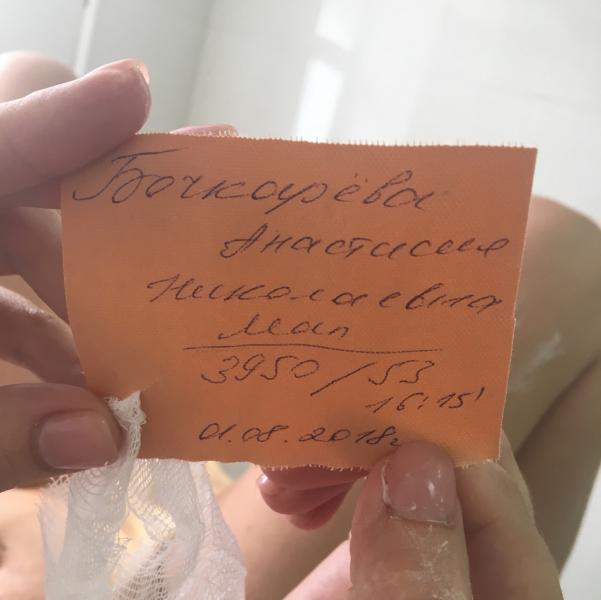 Бочкарёва
Анастасия
Николаевна
Мал
3950/53
16:15'
01.08.2018г